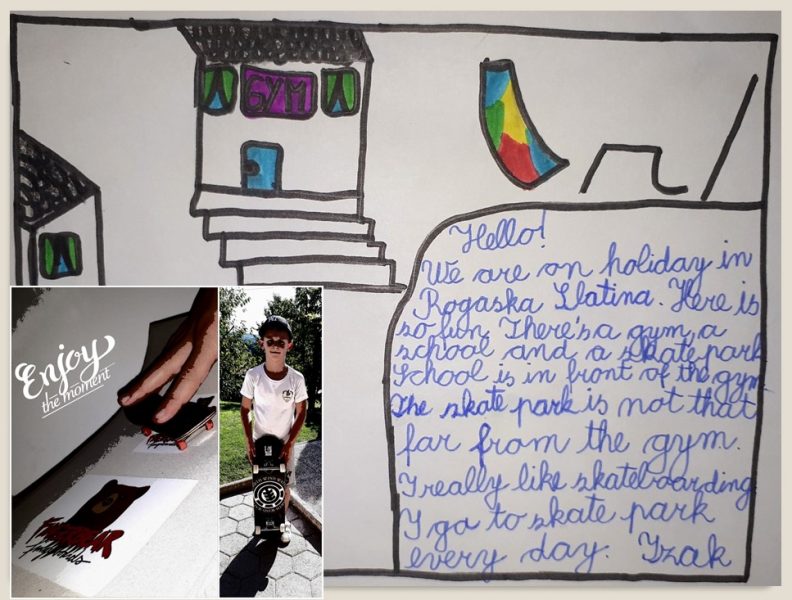 GYM
Hello!
We are on holiday in
Rogaska Slatina. Here is
so fun. There's a gym, a
school and a skate park
School is in front of the gym.
The skate park is not that
far from the gym.
I really like skateboarding
I go to skate park
every day. Izak
Enjoy
the moment